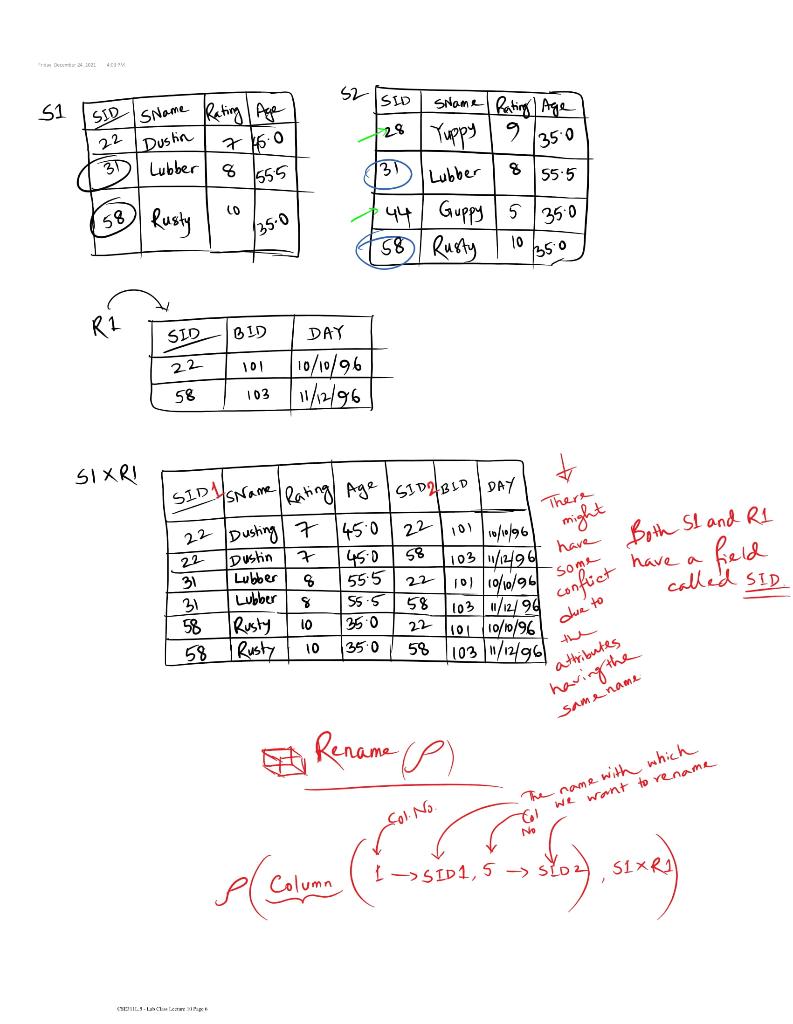 Friday, December 24, 2021 4:03 PM
S1
SID SName Rating Age
22 Dustin 7 45.0
31 Lubber 8 55.5
58 Rusty 10 35.0
S2
SID SName Rating Age
28 Yuppy 9 35.0
31 Lubber 8 55.5
44 Guppy 5 35.0
58 Rusty 10 35.0
R1
SID BID DAY
22 101 10/10/96
58 103 11/12/96
S1 X R1
SID1 SName Rating Age SID2 BID DAY
22 Dusting 7 45.0 22 101 10/10/96
22 Dustin 7 45.0 58 103 11/12/96
31 Lubber 8 55.5 22 101 10/10/96
31 Lubber 8 55.5 58 103 11/12/96
58 Rusty 10 35.0 22 101 10/10/96
58 Rusty 10 35.0 58 103 11/12/96
There
might
have
some
conflict
due to
the
attributes
having the
same name
Both S1 and R1
have a field
called SID.
Rename (ρ)
The name with which
we want to rename
Col. No.
Col
No
ρ(Column (1→SID1, 5→SID2), S1×R1)
CSE311L.5 - Lab Class Lecture 10 Page 6